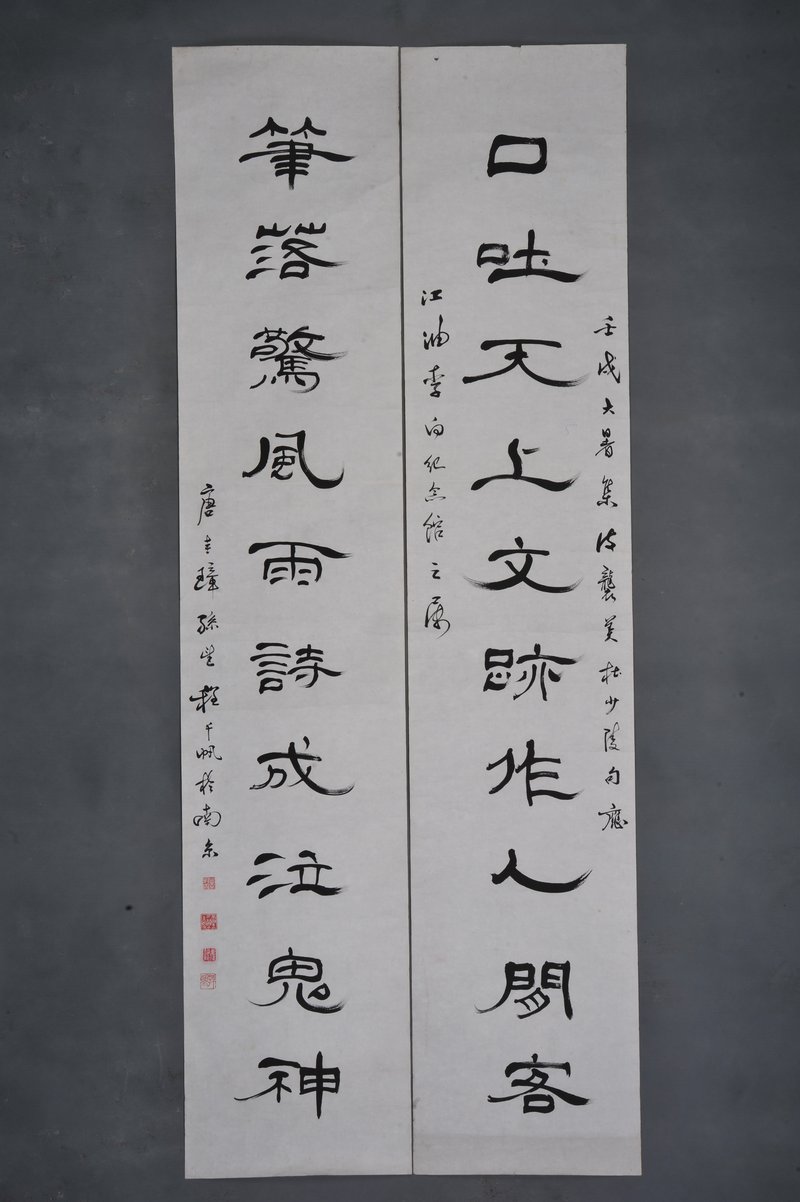 壬戌大暑集皮襲美杜少陵句應
口吐天上文跡作人間客
江油李白紀念館之属
筆落驚風雨詩成泣鬼神
唐圭璋孫望程千帆於南京